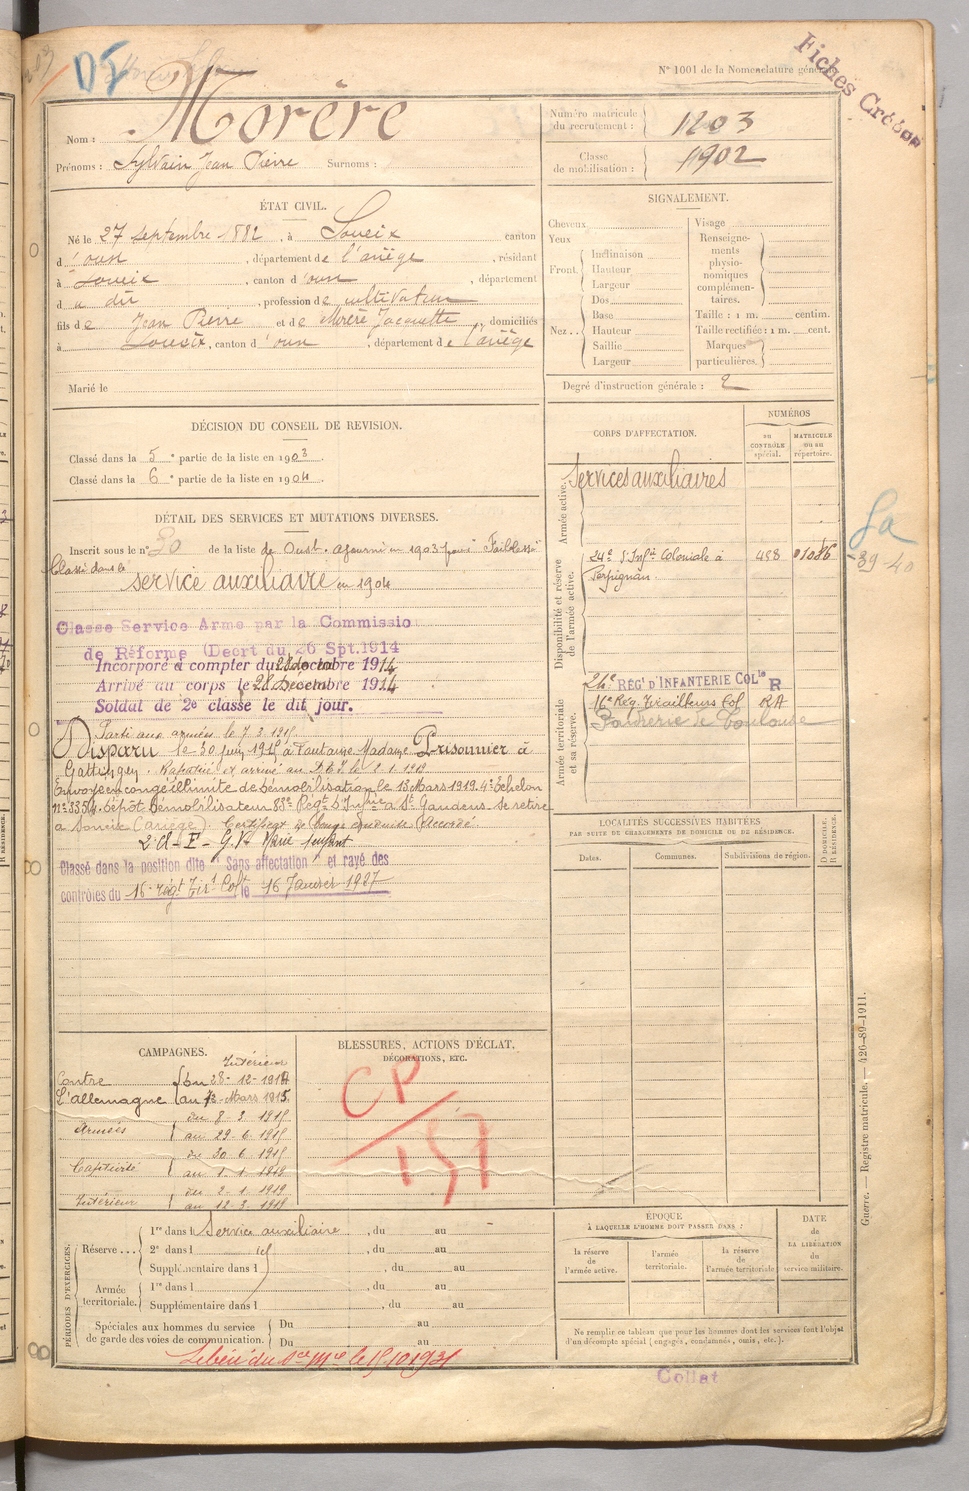 DT
N° 1001 de la Nomenclature générale.
Fiches Créées
Nom : Morère
Prénoms : Sylvain Jean Pierre Surnoms :
Numéro matricule du recrutement : 1203
Classe de mobilisation : 1902
ÉTAT CIVIL.
Né le 27 septembre 1882, à Soueix canton
d'oust, département de l'ariège, résidant
à Soueix, canton d'oust, département
d u dit, profession de cultivateur
fils de Jean Pierre et de Morère Jacquette, domiciliés
à Soueix, canton d'oust, département de l'ariège
Marié le
SIGNALEMENT.
Cheveux
Yeux
Front. Inclinaison
Hauteur
Largeur
Nez... Dos
Base
Hauteur
Saillie
Largeur
Visage
Renseignements physionomiques complémentaires.
Taille : 1 m. centim.
Taille rectifiée : 1 m. cent.
Marques particulières.
Degré d'instruction générale : 2
DÉCISION DU CONSEIL DE REVISION.
Classé dans la 5e partie de la liste en 1903.
Classé dans la 6e partie de la liste en 1904.
CORPS D'AFFECTATION.
NUMÉROS
AU CONTRÔLE spécial.
MATRICULE OU AU répertoire.
Armée active.
Services auxiliaires
Disponibilité et réserve de l'armée active.
24e d'Infie Coloniale à 458 01086
Perpignan
Armée territoriale et sa réserve.
24e RÉGt D'INFANTERIE COLle R
16e Rég. Tirailleurs Col RA
Poudrerie de Toulouse
39-40
DÉTAIL DES SERVICES ET MUTATIONS DIVERSES.
Inscrit sous le n° 20 de la liste de Oust. ajourné en 1903 pour Faiblesse
Classé dans le service auxiliaire en 1904
Classe Service Arme par la Commissio
de Réforme (Decrt du 26 Spt.1914
Incorporé à compter du 28 décembre 1914
Arrivé au corps le 28 Décembre 1914
Soldat de 2e classe le dit jour.
Parti aux armées le 7.3.1915
Disparu le 30 juin 1915 à Fontaine Madame Prisonnier à
Gottingen. Rapatrié et arrivé au D.T.I. le 2.1.1919
Envoyé en congé illimité de démobilisation le 13 Mars 1919. 4e Echelon
n° 3354. dépôt démobilisateur 83e Régt d'Infie à St Gaudens. Se retire
à Soueix (ariège). Certificat de bonne conduite Accordé.
Classé dans la position dite "Sans affectation" et rayé des
contrôles du 16e régt Tirs Colx le 16 Janvier 1927
LOCALITÉS SUCCESSIVES HABITÉES
PAR SUITE DU CHANGEMENTS DE DOMICILE OU DE RÉSIDENCE.
Dates. Communes. Subdivisions de région. D DOMICILE. R RÉSIDENCE.
CAMPAGNES.
Contre L'allemagne
Intérieur
du 28-12-1914
au 7-Mars 1915
Armées du 8-3-1915
au 29-6-1915
Captivité du 30-6-1915
au 1-1-1919
Intérieur du 2-1-1919
au 12-3-1919
BLESSURES, ACTIONS D'ÉCLAT,
DÉCORATIONS, ETC.
CP
157
PÉRIODES D'EXERCICES.
Réserve... 1re dans l Service auxiliaire, du au
2e dans l id, du au
Supplémentaire dans l, du au
Armée territoriale. 1re dans l, du au
Supplémentaire dans l, du au
Spéciales aux hommes du service de garde des voies de communication. Du au
Du au
Libéré du sce Mre le 15.10.1931
ÉPOQUE
À LAQUELLE L'HOMME DOIT PASSER DANS :
la réserve de l'armée active.
l'armée territoriale.
la réserve de l'armée territoriale
DATE de LA LIBÉRATION du service militaire.
Ne remplir ce tableau que pour les hommes dont les services font l'objet
d'un décompte spécial (engagés, condamnés, omis, etc.).
Collat
Guerre. — Registre matricule. — 426-89-1911.